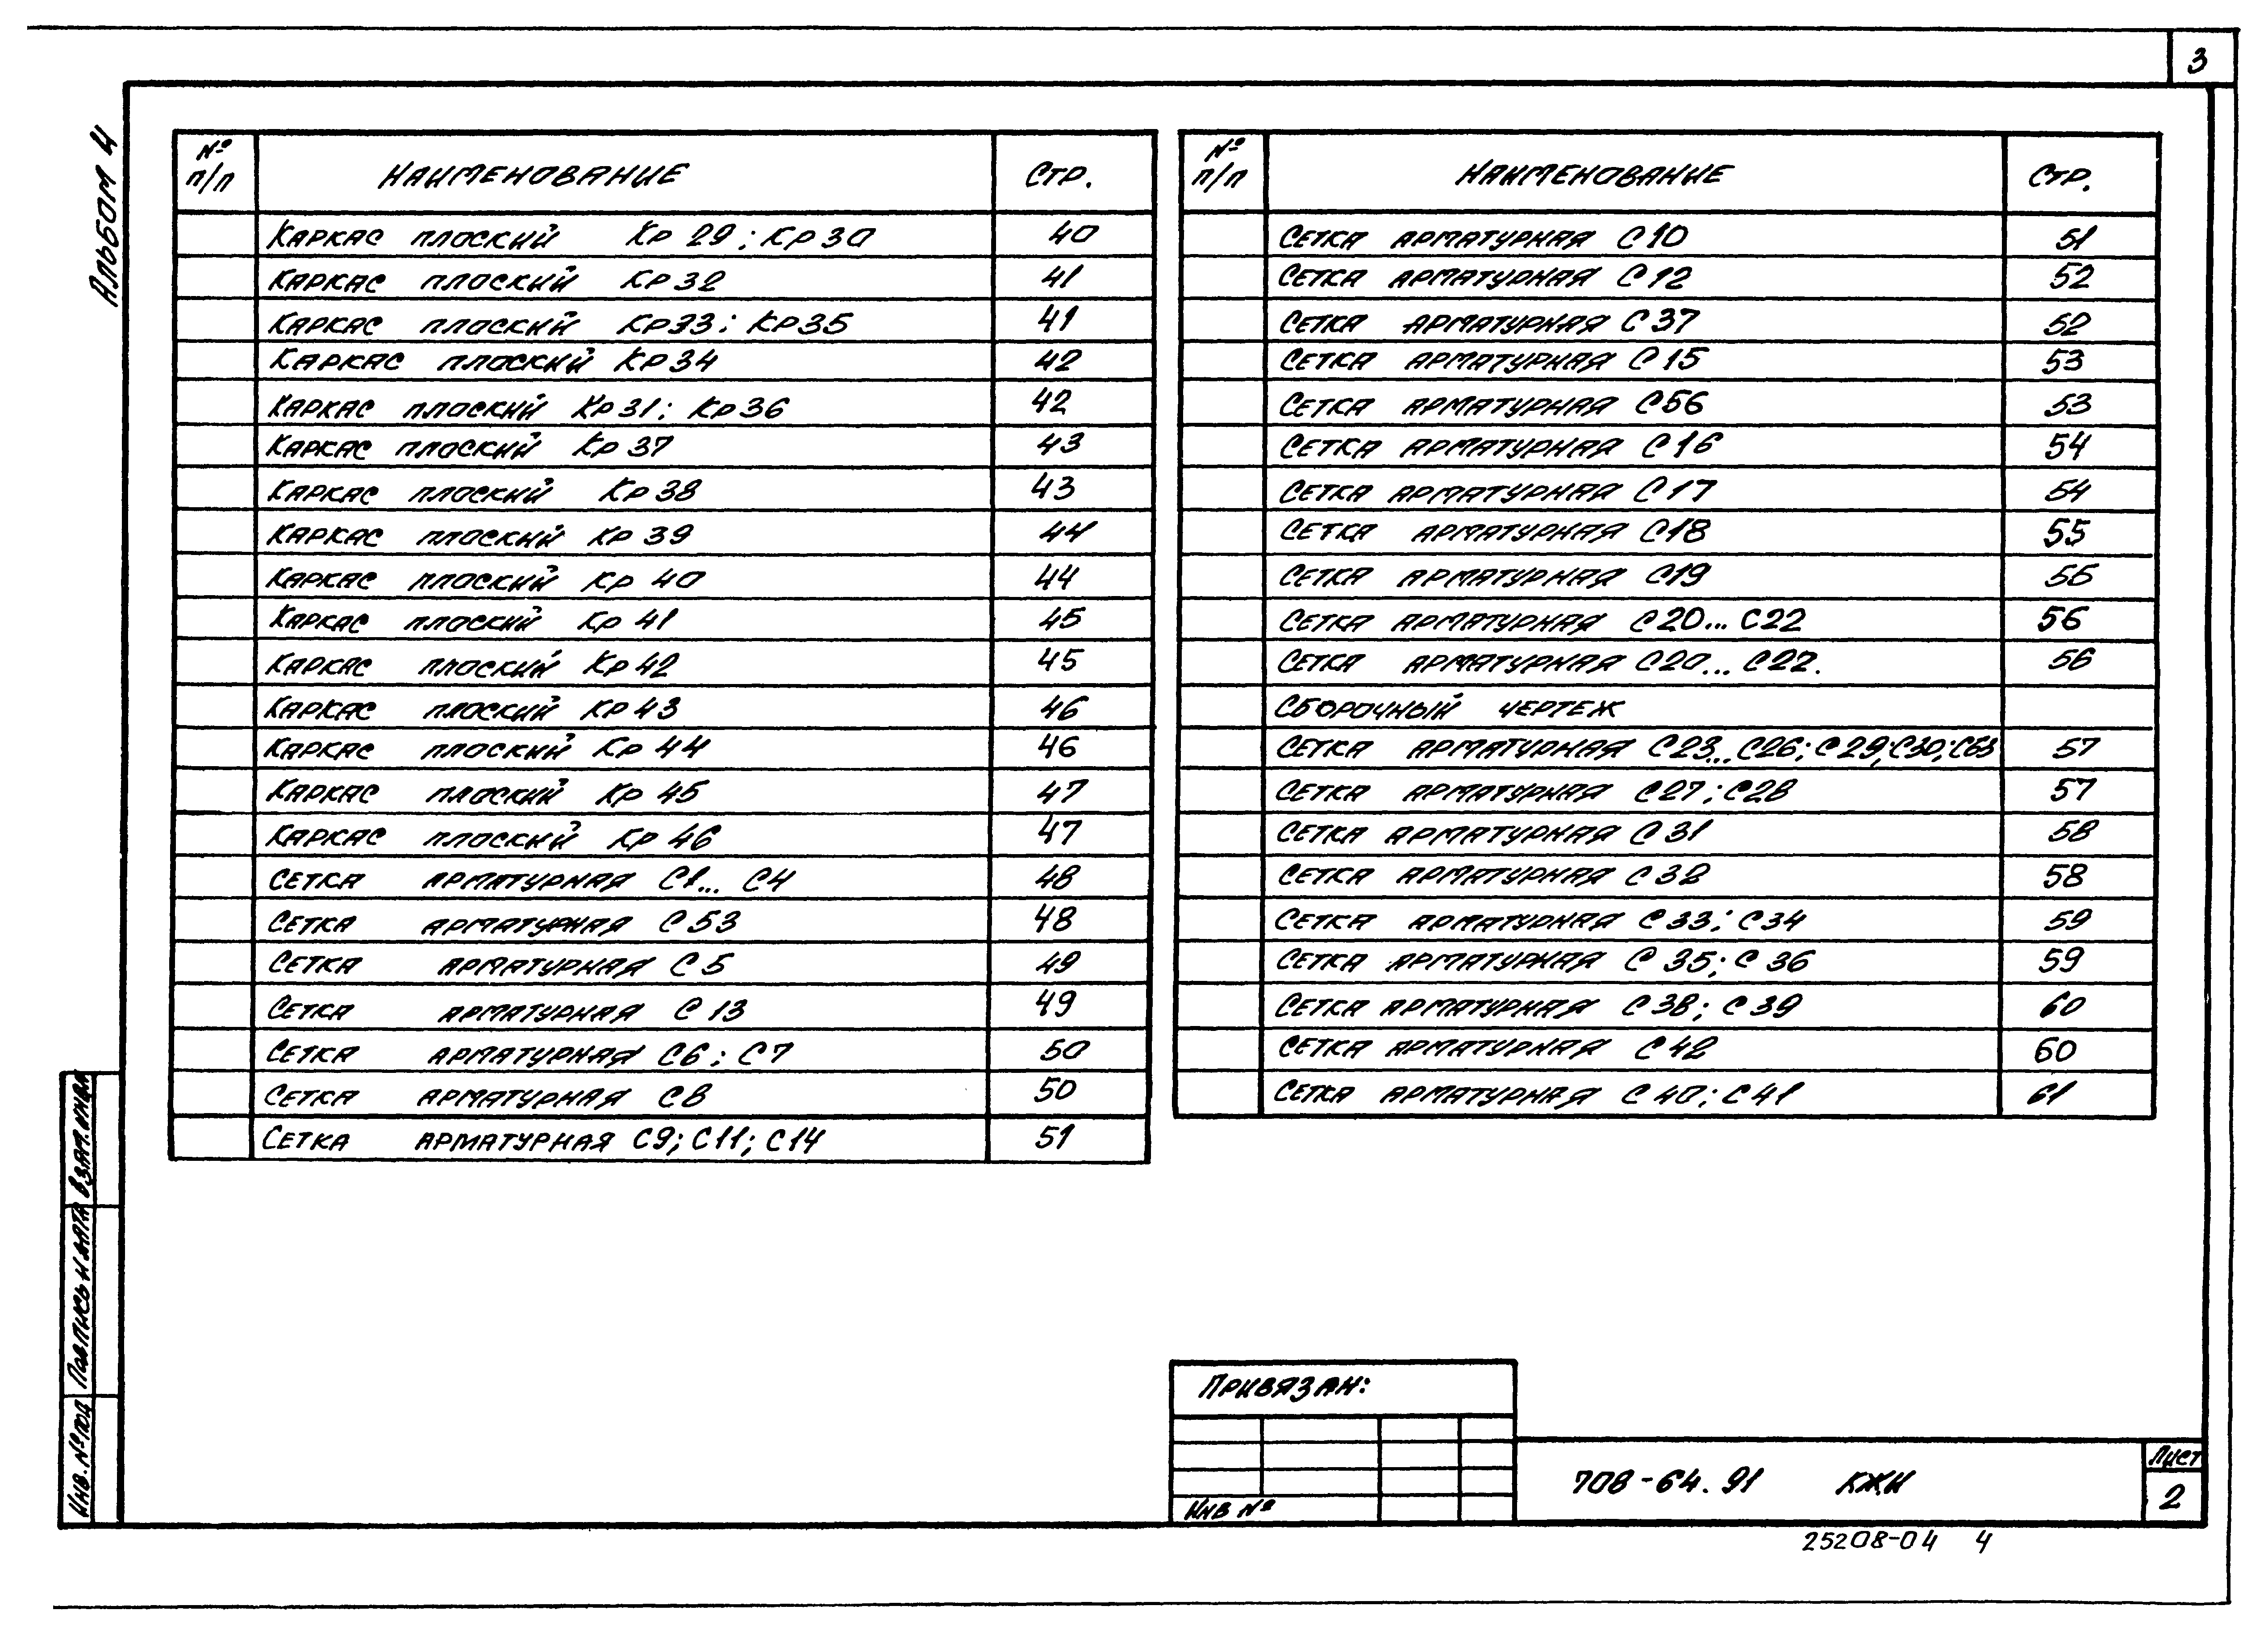 3
Альбом 4
№ п/п НАИМЕНОВАНИЕ СТР.
КАРКАС ПЛОСКИЙ Кр 29; Кр 30 40
КАРКАС ПЛОСКИЙ Кр 32 41
КАРКАС ПЛОСКИЙ Кр 33; Кр 35 41
КАРКАС ПЛОСКИЙ Кр 34 42
КАРКАС ПЛОСКИЙ Кр 31; Кр 36 42
КАРКАС ПЛОСКИЙ Кр 37 43
КАРКАС ПЛОСКИЙ Кр 38 43
КАРКАС ПЛОСКИЙ Кр 39 44
КАРКАС ПЛОСКИЙ Кр 40 44
КАРКАС ПЛОСКИЙ Кр 41 45
КАРКАС ПЛОСКИЙ Кр 42 45
КАРКАС ПЛОСКИЙ Кр 43 46
КАРКАС ПЛОСКИЙ Кр 44 46
КАРКАС ПЛОСКИЙ Кр 45 47
КАРКАС ПЛОСКИЙ Кр 46 47
СЕТКА АРМАТУРНАЯ С1... С4 48
СЕТКА АРМАТУРНАЯ С 53 48
СЕТКА АРМАТУРНАЯ С 5 49
СЕТКА АРМАТУРНАЯ С 13 49
СЕТКА АРМАТУРНАЯ С6; С7 50
СЕТКА АРМАТУРНАЯ С8 50
СЕТКА АРМАТУРНАЯ С9; С11; С14 51
№ п/п НАИМЕНОВАНИЕ СТР.
СЕТКА АРМАТУРНАЯ С10 51
СЕТКА АРМАТУРНАЯ С12 52
СЕТКА АРМАТУРНАЯ С37 52
СЕТКА АРМАТУРНАЯ С15 53
СЕТКА АРМАТУРНАЯ С56 53
СЕТКА АРМАТУРНАЯ С16 54
СЕТКА АРМАТУРНАЯ С17 54
СЕТКА АРМАТУРНАЯ С18 55
СЕТКА АРМАТУРНАЯ С19 55
СЕТКА АРМАТУРНАЯ С20... С22 56
СЕТКА АРМАТУРНАЯ С20... С22. 56
СБОРОЧНЫЙ ЧЕРТЕЖ
СЕТКА АРМАТУРНАЯ С23... С26; С29; С30; С63 57
СЕТКА АРМАТУРНАЯ С27; С28 57
СЕТКА АРМАТУРНАЯ С31 58
СЕТКА АРМАТУРНАЯ С32 58
СЕТКА АРМАТУРНАЯ С33; С34 59
СЕТКА АРМАТУРНАЯ С35; С36 59
СЕТКА АРМАТУРНАЯ С38; С39 60
СЕТКА АРМАТУРНАЯ С42 60
СЕТКА АРМАТУРНАЯ С40; С41 61
Инв. № под
Подпись и дата
Взам. инв.
ПРИВЯЗАН:
ИНВ №
708-64.91 КЖИ
Лист
2
25208-04 4